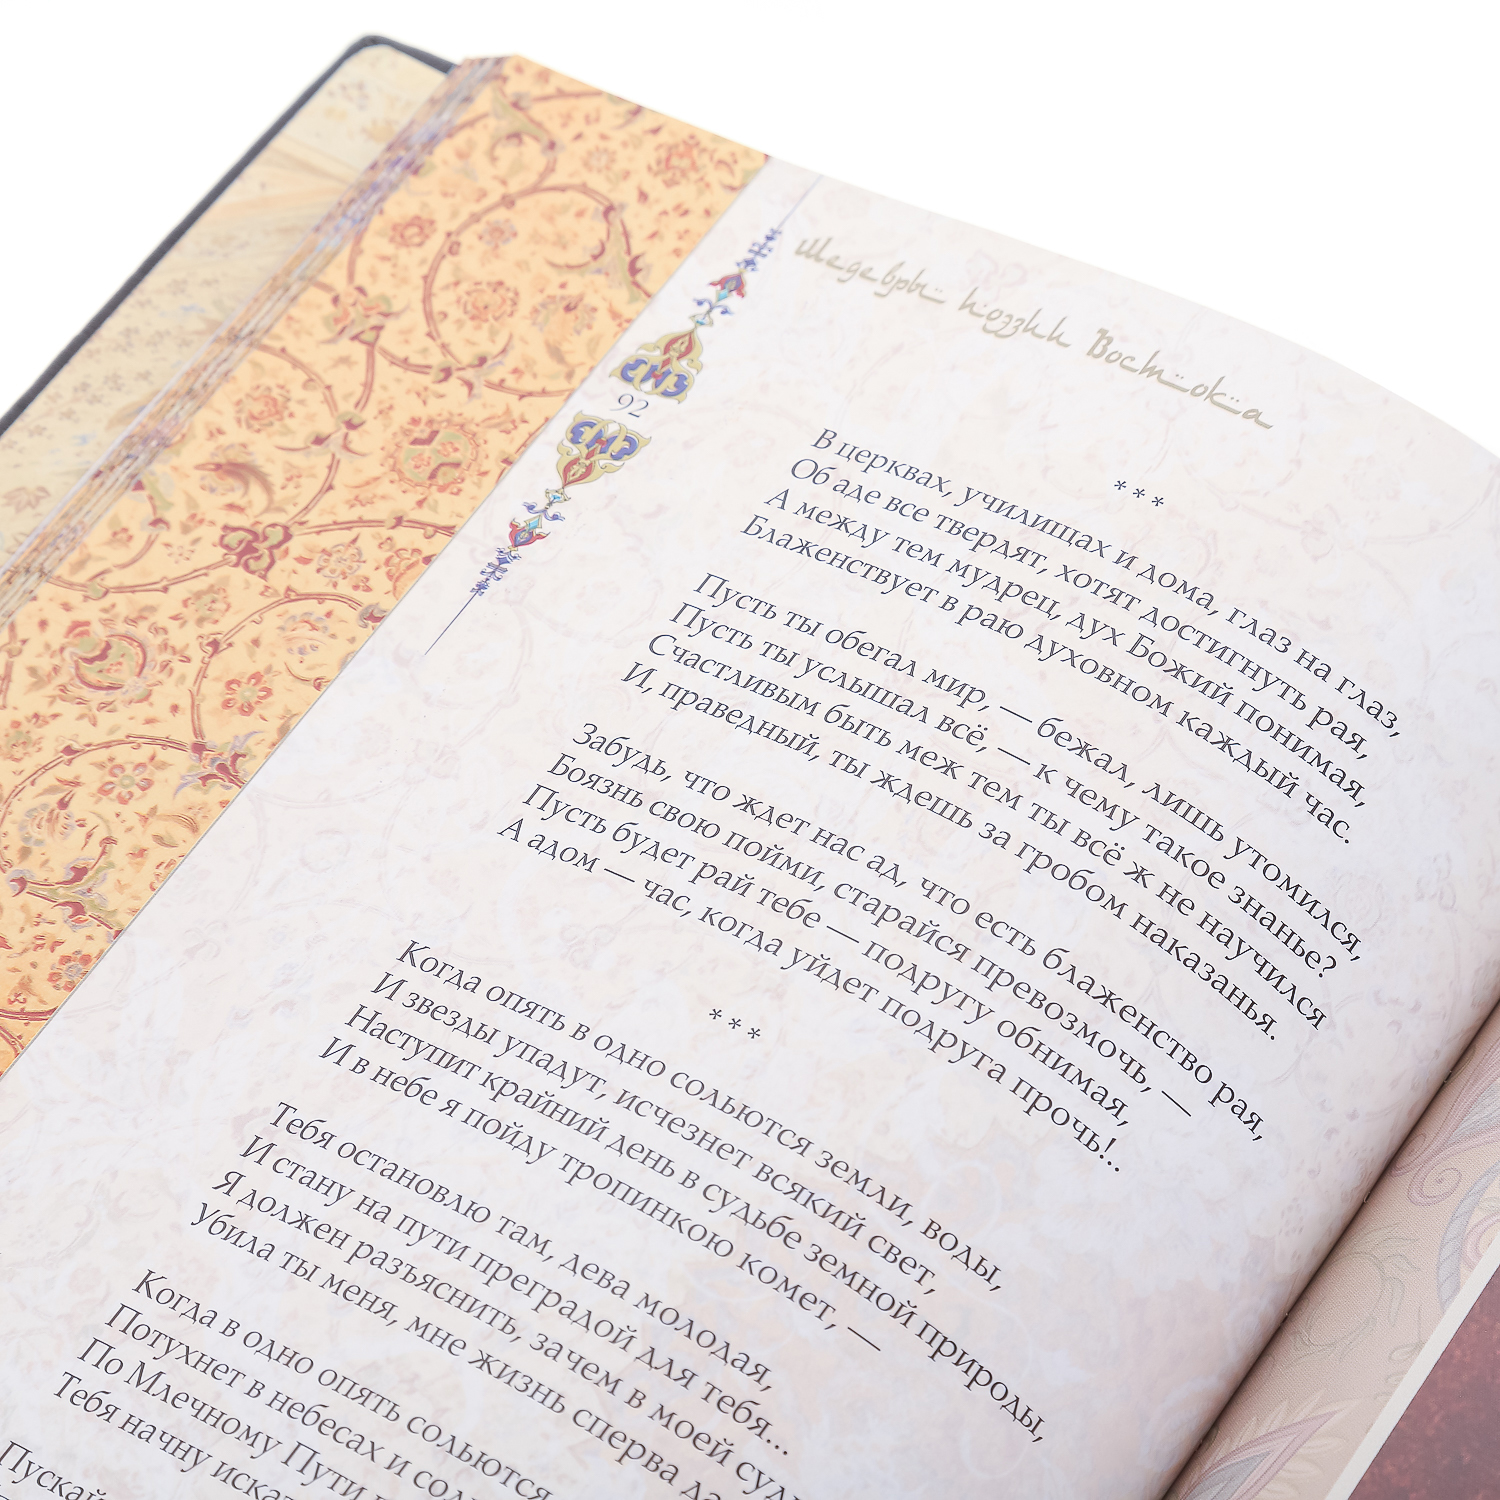 Шедевры поэзии Востока
92
* * *
В церквах, училищах и дома, глаз на глаз,
Об аде все твердят, хотят достигнуть рая,
А между тем мудрец, дух Божий понимая,
Блаженствует в раю духовном каждый час.
Пусть ты обегал мир, — бежал, лишь утомился,
Пусть ты услышал всё, — к чему такое знанье?
Счастливым быть меж тем ты всё ж не научился
И, праведный, ты ждешь за гробом наказанья.
Забудь, что ждет нас ад, что есть блаженство рая,
Боязнь свою пойми, старайся превозмочь, —
Пусть будет рай тебе — подругу обнимая,
А адом — час, когда уйдет подруга прочь!..
* * *
Когда опять в одно сольются земли, воды,
И звезды упадут, исчезнет всякий свет,
Наступит крайний день в судьбе земной природы,
И в небе я пойду тропинкою комет, —
Тебя остановлю там, дева молодая,
И стану на пути преградой для тебя...
Я должен разъяснить, зачем в моей
Убила ты меня, мне жизнь сперва
Когда в одно опять сольются
Потухнет в небесах и
По Млечному Пути
Тебя начну